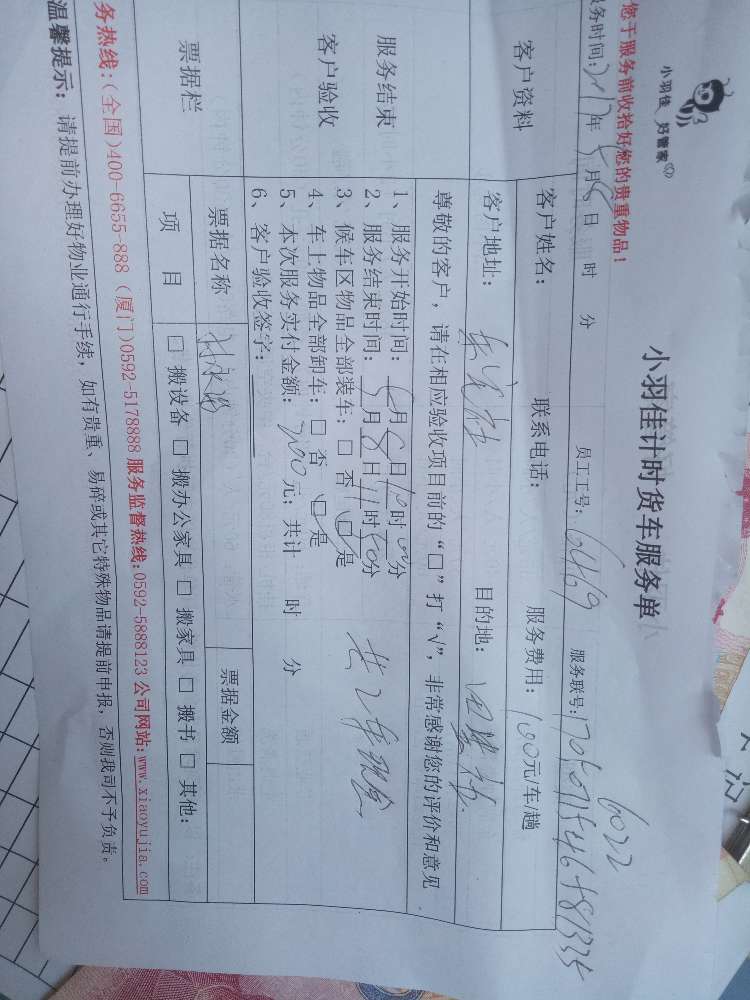 小羽佳 好管家
小羽佳计时货车服务单
您于服务前收拾好您的贵重物品！
务时间:2017年5月8日 时 分 员工工号: 6469 服务联号:
6022
客户资料
客户姓名: 联系电话: 服务费用: 100元/车/趟
客户地址: 目的地:
服务结束
客户验收
尊敬的客户，请在相应验收项目前的“□”打“√”，非常感谢您的评价和意见
1、服务开始时间: 月 日10时00分
2、服务结束时间: 月8日11时 分
3、候车区物品全部装车: □ 否 □ 是
4、车上物品全部卸车: □ 否 □ 是
5、本次服务实付金额: 200元；共计 时 分
6、客户验收签字:
共2车
票据栏
票据名称 票据金额
项 目 □ 搬设备 □ 搬办公家具 □ 搬家具 □ 搬书 □ 其他:
务热线:(全国)400-6655-888 (厦门)0592-5178888 服务监督热线:0592-5888123 公司网站:www.xiaoyujia.com
温馨提示: 请提前办理好物业通行手续，如有贵重、易碎或其它特殊物品请提前申报，否则我司不予负责。